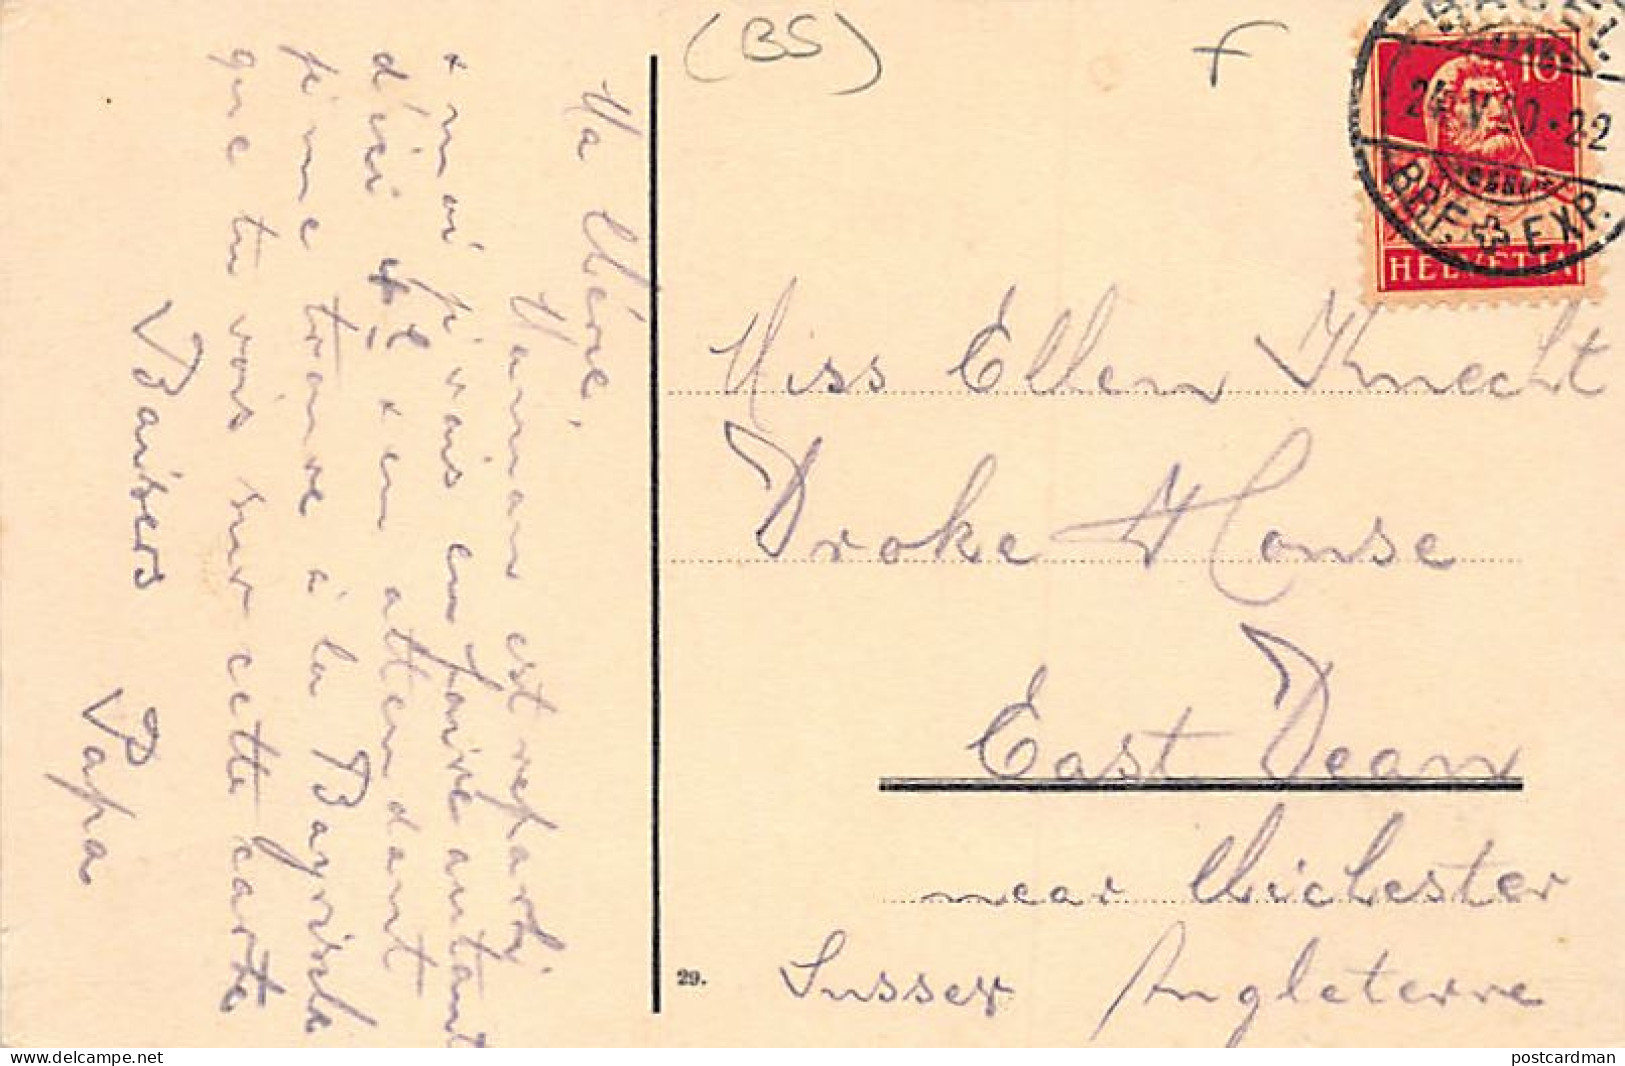 (BS)
BASEL
10
24.V.20.-22
BRF. EXP.
HELVETIA
Ma Chérie,
Maman est reparti
+ moi j'vais en faire autant
d'ici + en attendant
je me trouve à la Bayrische
que tu vois sur cette carte
Baisers
Papa
Miss Ellen Knecht
Droke House
East Dean
near Chichester
Sussex Angleterre
29.
delcampe.net
postcardman